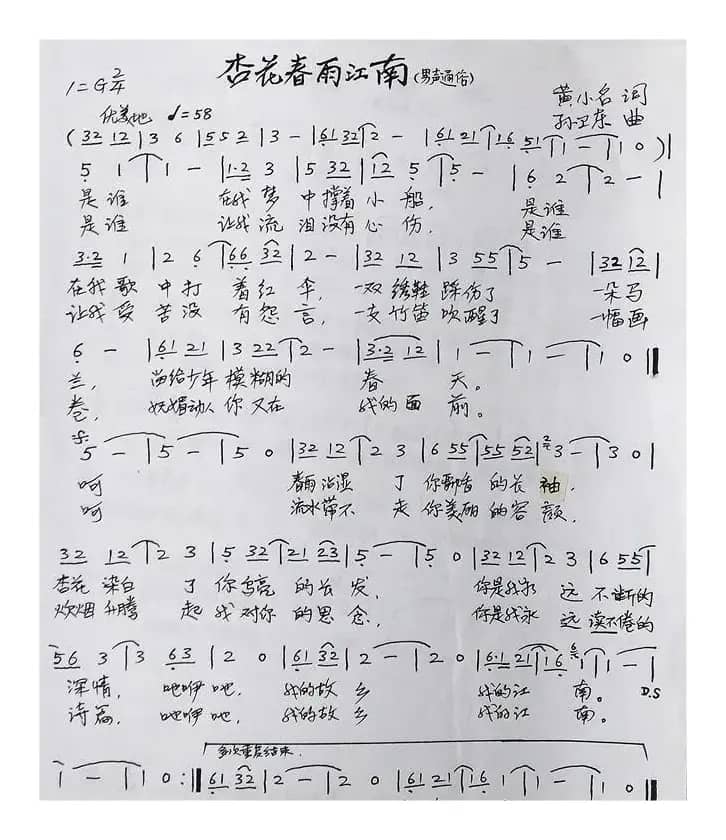 杏花春雨江南(男声通俗)
1=G 2/4
黄小名 词
优美地 ♩=58
孙卫东 曲
(32 12|3 6|55 2|3 -|61 32|2 -|61 21|16 51|1 -|1 0)|
5 1|1 -|1·2 3|5 32|12 5|5 -|6 2|2 -|
是谁 在我梦 中撑着小 船, 是谁
是谁 让我流 泪没有心 伤, 是谁
3·2 1|2 6|66 32|2 -|32 12|3 55|5 -|32 12|
在我歌 中打 着红 伞, 一双绣鞋 踩伤了 一朵马
让我受 苦没 有怨 言, 一支竹笛 吹醒了 一幅画
6 -|61 21|3 22|2 -|3·2 12|1 -|1 -|1 0‖
兰, 留给少年 模糊的 春 天。
卷, 妩媚动人 你又在 我的面 前。
5 -|5 -|5 0|32 12|2 3|6 55|55 52|3 -|3 0|
呵 春雨沾湿 了 你飘香 的长 袖,
呵 流水带不 走 你美丽 的容 颜,
32 12|2 3|5 32|21 23|5 -|5 0|32 12|2 3|6 55|
杏花 染白 了 你乌亮 的长 发, 你是我永 远 不断的
炊烟 升腾 起 我对你 的思 念, 你是我永 远 读不倦的
56 3|3 63|2 0|61 32|2 -|2 0|6·1 21|16 1|1 -|
深情, 吔咿吔, 我的故 乡 我的江 南。
诗篇, 吔咿吔, 我的故 乡 我的江 南。 D.S
多次重复结束.
1 -|1 0:‖61 32|2 -|2 0|61 21|16 1|1 -|1 0‖